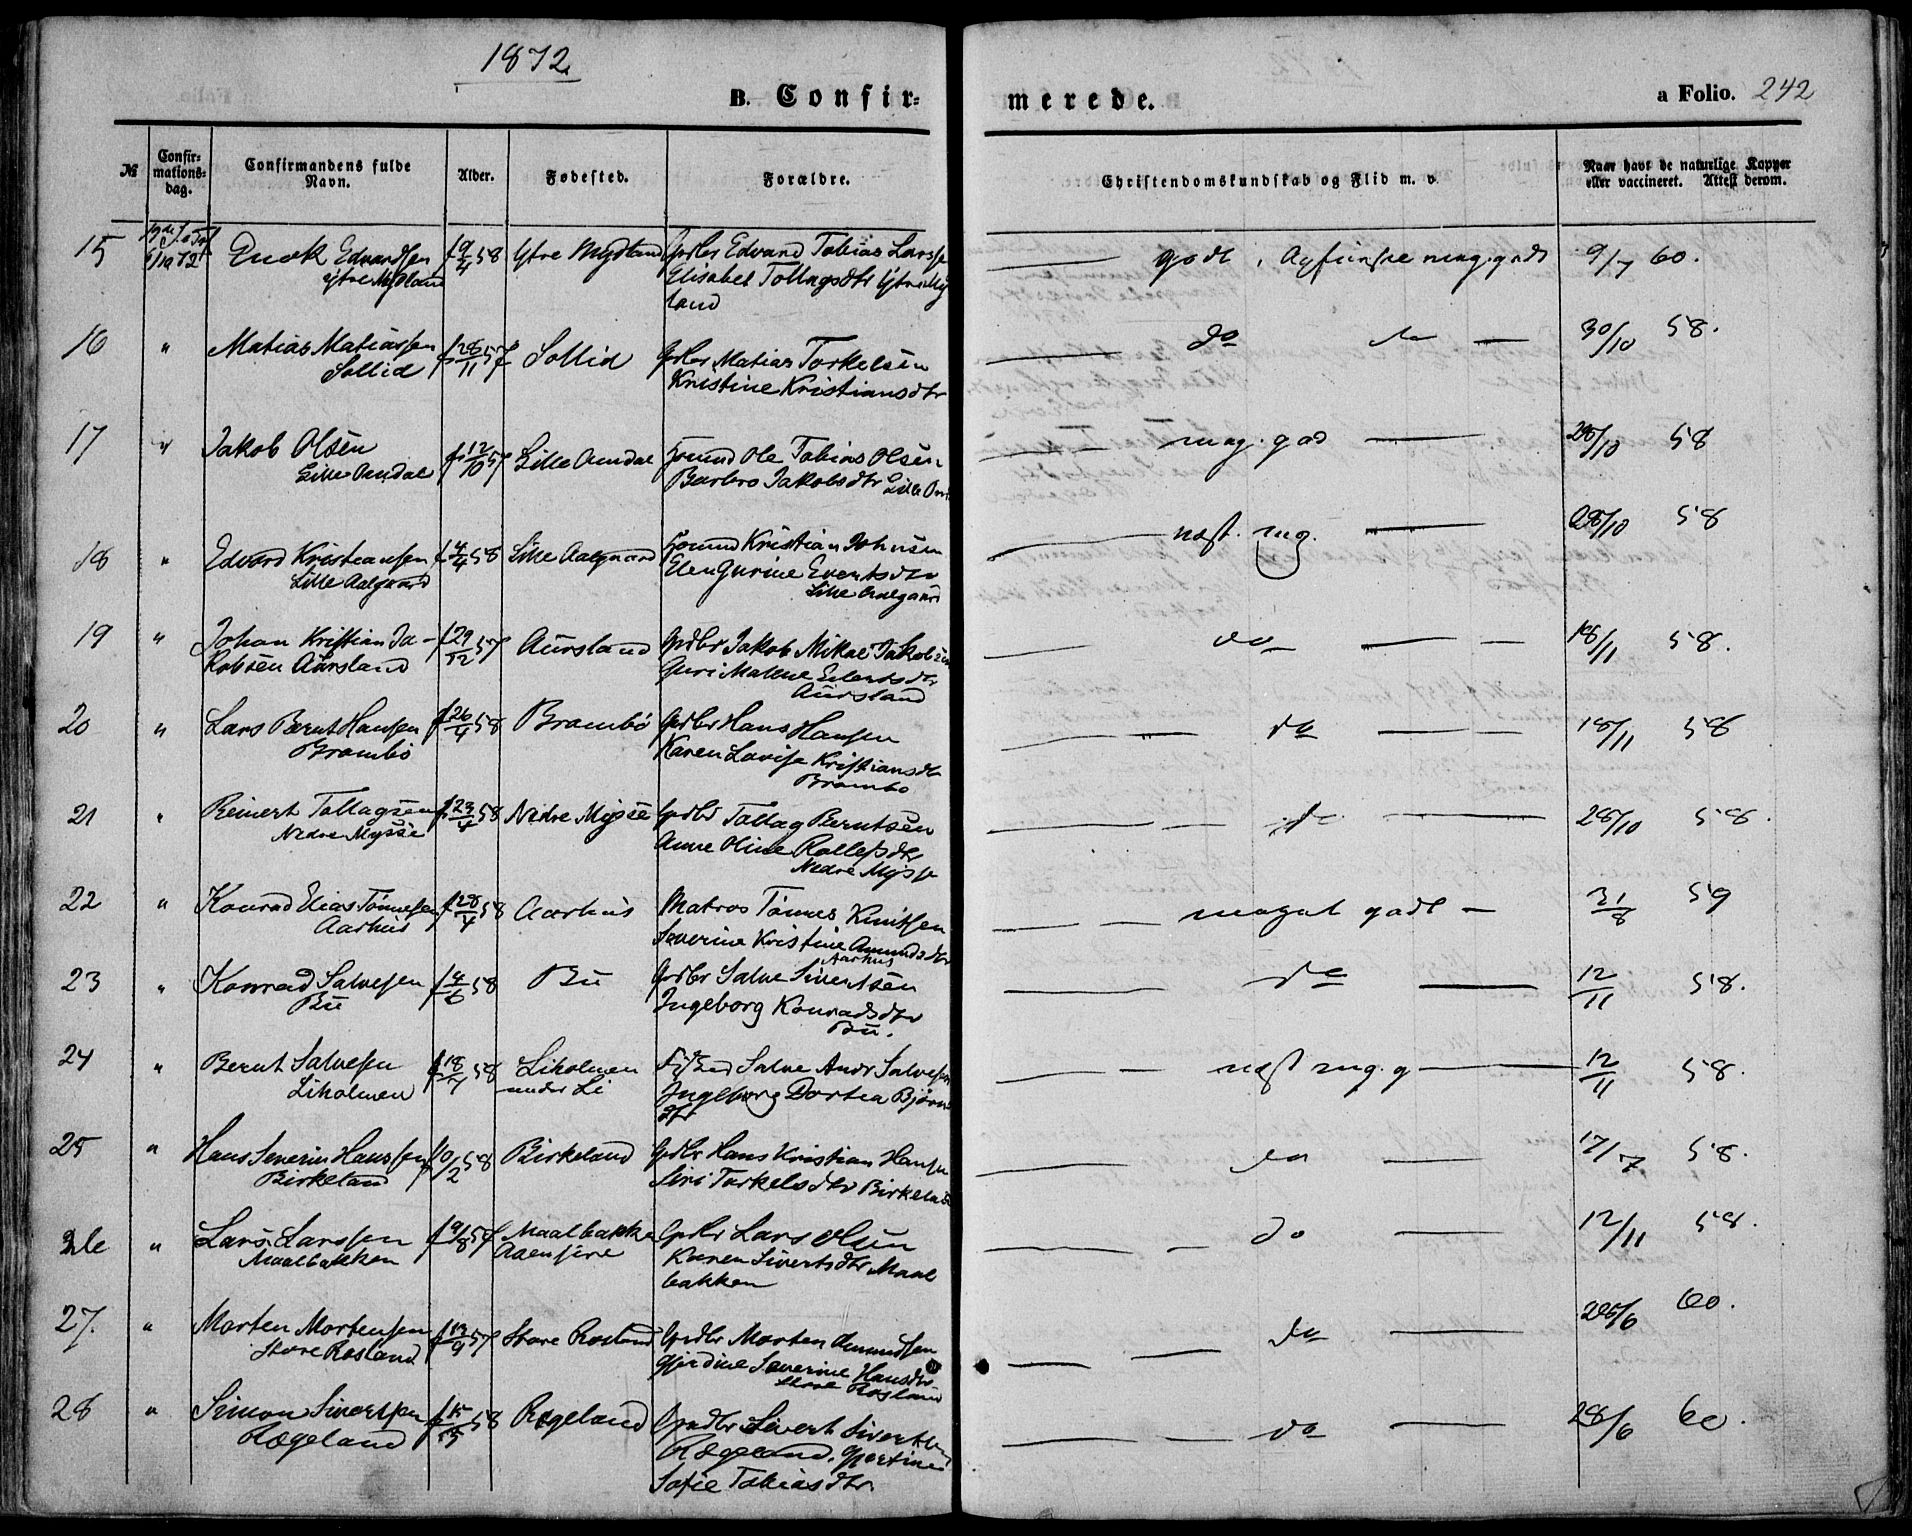 1872
B. Confir-
merede.
a Folio. 242
№
Confir-
mations-
dag.
Confirmandens fulde
Navn.
Alder.
Fødested.
Forældre.
Christendomskundskab og Flid m. v.
Naar havt de naturlige Kopper
eller vaccineret. Attest derom.
15 6/10 72 Enok Edvardsen f 9/4 58 Ytre Mydland Grdbr Edvard Tobias Larss
Ytre Mydland Elisabet Tollagsdtr Ytre Myd
land
godt, Opførsel meg. godt 9/7 60.
16 " Matias Matiassen f 28/11 57 Sollid Grdbr Matias Torkelsen
Sollid Kristine Kristiansdtr
do do — 30/10 58.
17 " Jakob Olsen f 12/10 57 Lille Aamdal Ole Tobias Olsen
Lille Aamdal Barbro Jakobsdtr Lille
meg. god — 28/10 58
18 " Edvard Kristiansen f 4/4 58 Lille Aalgaard Kristian Johnsen
Lille Aalgaard Elen Gurine Evertsdtr
Lille Aalgaard
næst. mg. — 28/10 58
19 " Johan Kristian Ja- f 29/12 57 Aursland Grdbr Jakob Mikal Jakobsen
kobsen Aursland Guri Malene Eilertsdtr
Aursland
do — 18/11 58.
20 " Lars Bernt Hansen f 26/4 58 Brambø Grdbr Hans Hansen
Brambø Karen Lovise Kristiansdtr
Brambø
do — 18/11 58
21 " Reinert Tollagsen f 23/4 58 Nedre Mysse Grdbr Tollag Berntsen
Nedre Mysse Anne Oline Rollefsdtr
Nedre Mysse
do — 28/10 58.
22 " Konrad Elias Tønnesen f 28/4 58 Aarhus Matros Tønnes Knutsen
Aarhus Severine Kristine Amundsdtr
Aarhus
meget godt — 31/8 59
23 " Konrad Salvesen f 4/6 58 Bu Grdbr Salve Sivertsen
Bu Ingeborg Konradsdtr
Bu.
do — 12/11 58.
24 " Bernt Salvesen f 18/4 58 Liholmen Salve Andr Salvesen
Liholmen under Li Ingeborg Dortea Bjørns
dtr
næst mg. g — 12/11 58.
25 " Hans Severin Hanssen f 10/2 58 Birkeland Grdbr Hans Kristian Hansen
Birkeland Siri Torkelsdtr Birkeland
do — 17/7 58.
26 " Lars Larssen f 9/8 57 Maalbakken Grdbr Lars Olsen
Maalbakken Aaensire Karen Sivertsdtr Maal
bakken
do — 12/11 58.
27. " Morten Mortensen f 13/9 57 Store Rosland Grdbr Morten Amundsen
Store Rosland Gjerdine Severine Hansdtr
Store Rosland
do — 28/6 60.
28 " Simon Sivertsen f 15/5 58 Rægeland Grdbr Sivert Sivertsen
Rægeland Rægeland, Gjertine
Sofie Tobiasdtr
do — 28/6 60.